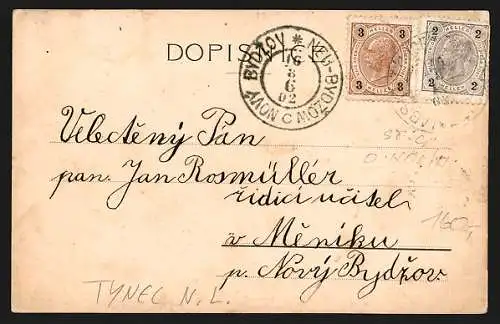 DOPISNICE
NOVÝ BYDŽOV * NEU-BYDŽOV C
16
8
6
02
3 3
HELLER
3 3
2 2
HELLER
2 2
Velectěný Pan
pan Jan Rosmüller
řídící učitel
v Měníku
p. Nový Bydžov.
TYNEC N. L.